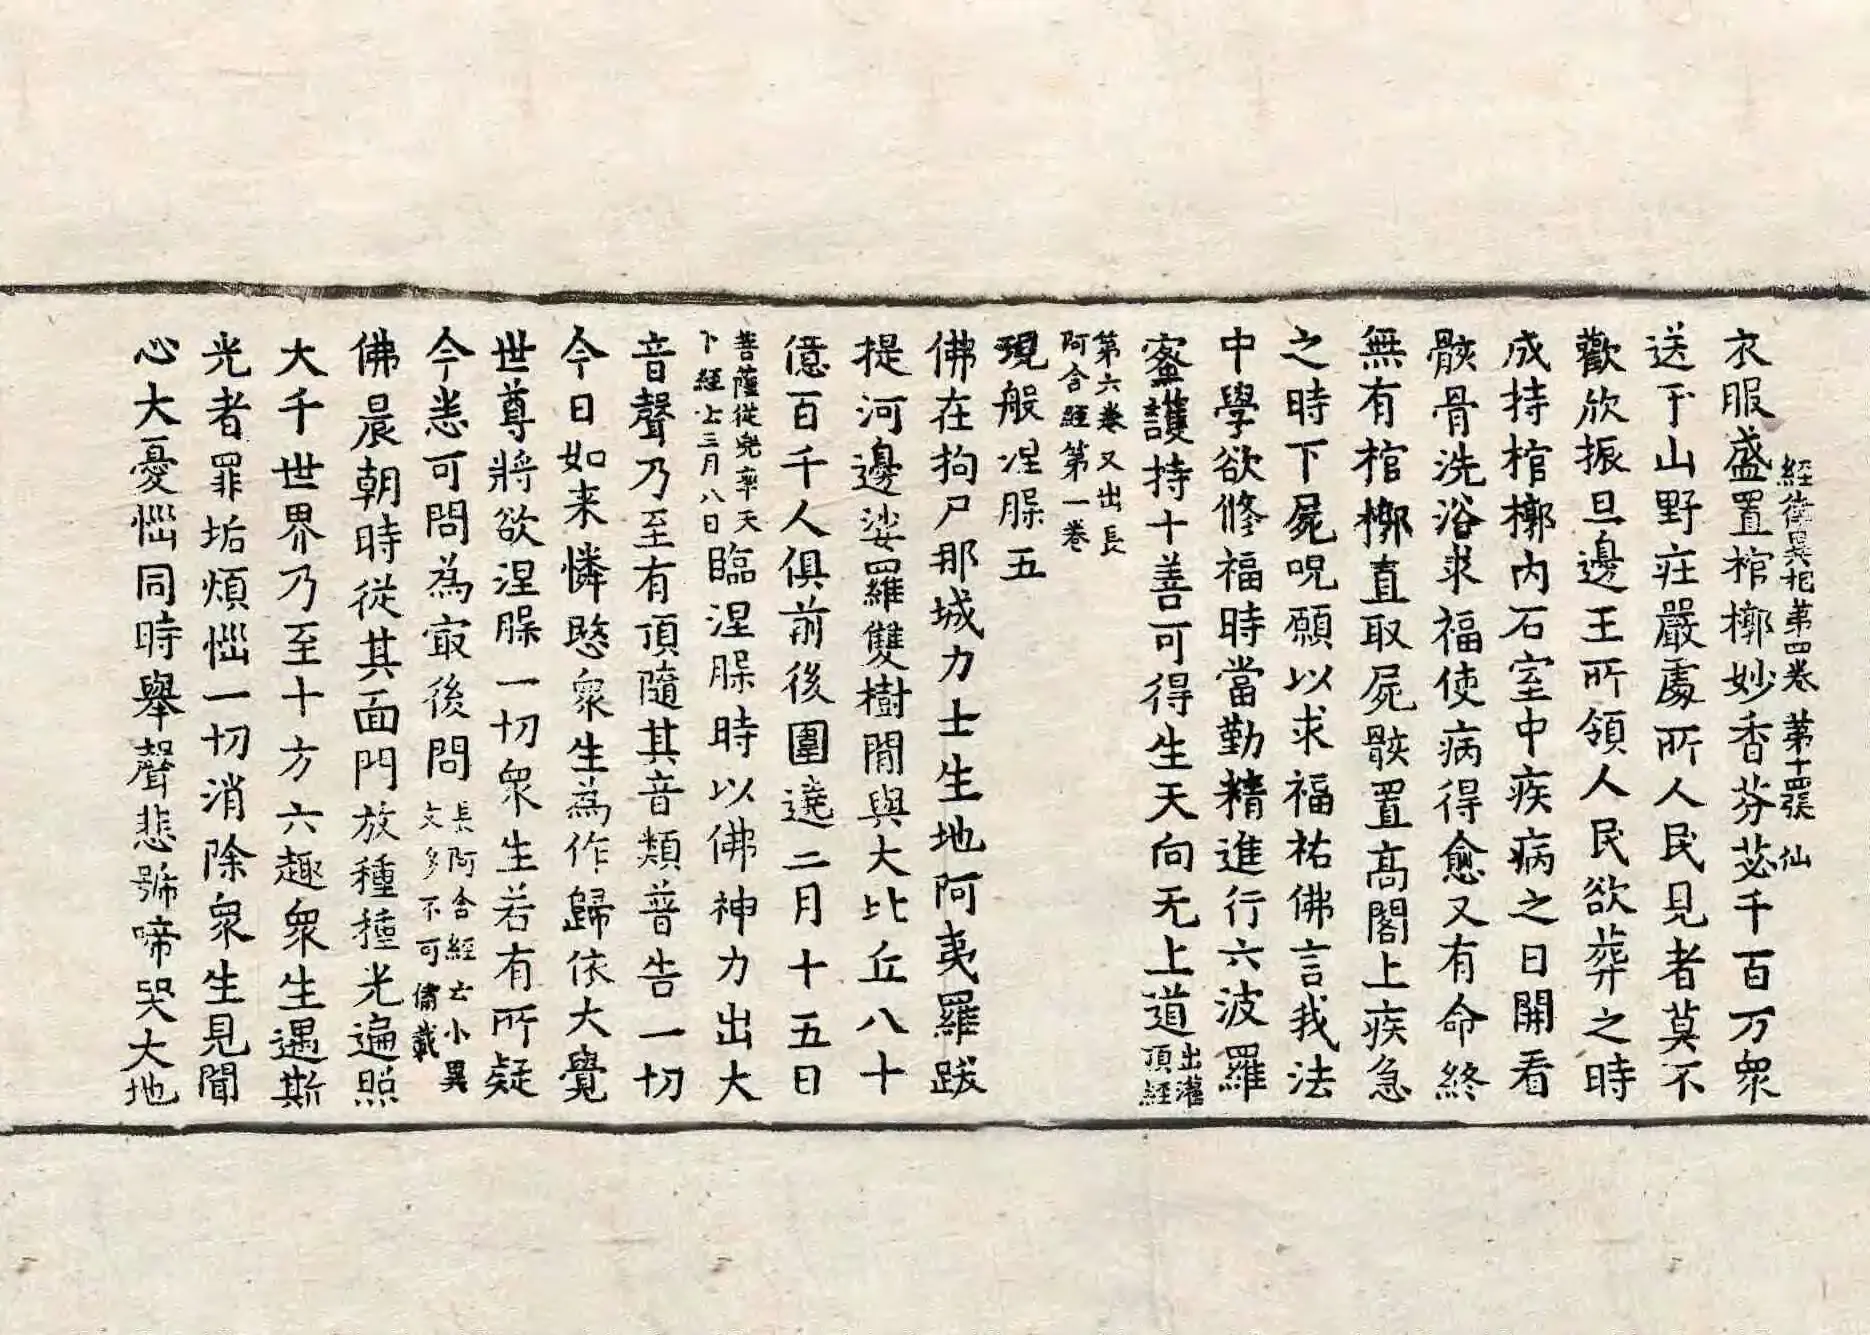 衣服盛置棺槨妙香芬苾千百万衆
經律異相第四卷 第十四張 仙
送于山野莊嚴處所人民見者莫不
歡欣振旦邊王所領人民欲葬之時
成持棺槨內石室中疾病之日開看
骸骨洗浴求福使病得愈又有命終
無有棺槨直取屍骸置高閣上疾急
之時下屍呪願以求福祐佛言我法
中學欲修福時當勤精進行六波羅
蜜護持十善可得生天向无上道出灌頂經
第六卷又出長
阿含經第一卷
現般涅槃五
佛在拘尸那城力士生地阿夷羅跋
提河邊娑羅雙樹間與大比丘八十
億百千人俱前後圍遶二月十五日
菩薩從兜率天下經云三月八日臨涅槃時以佛神力出大
音聲乃至有頂隨其音類普告一切
今日如来憐愍衆生為作歸依大覺
世尊將欲涅槃一切衆生若有所疑
今悉可問為㝡後問長阿含經云小異文多不可備載
佛晨朝時從其面門放種種光遍照
大千世界乃至十方六趣衆生遇斯
光者罪垢煩惱一切消除衆生見聞
心大憂惱同時舉聲悲號啼哭大地